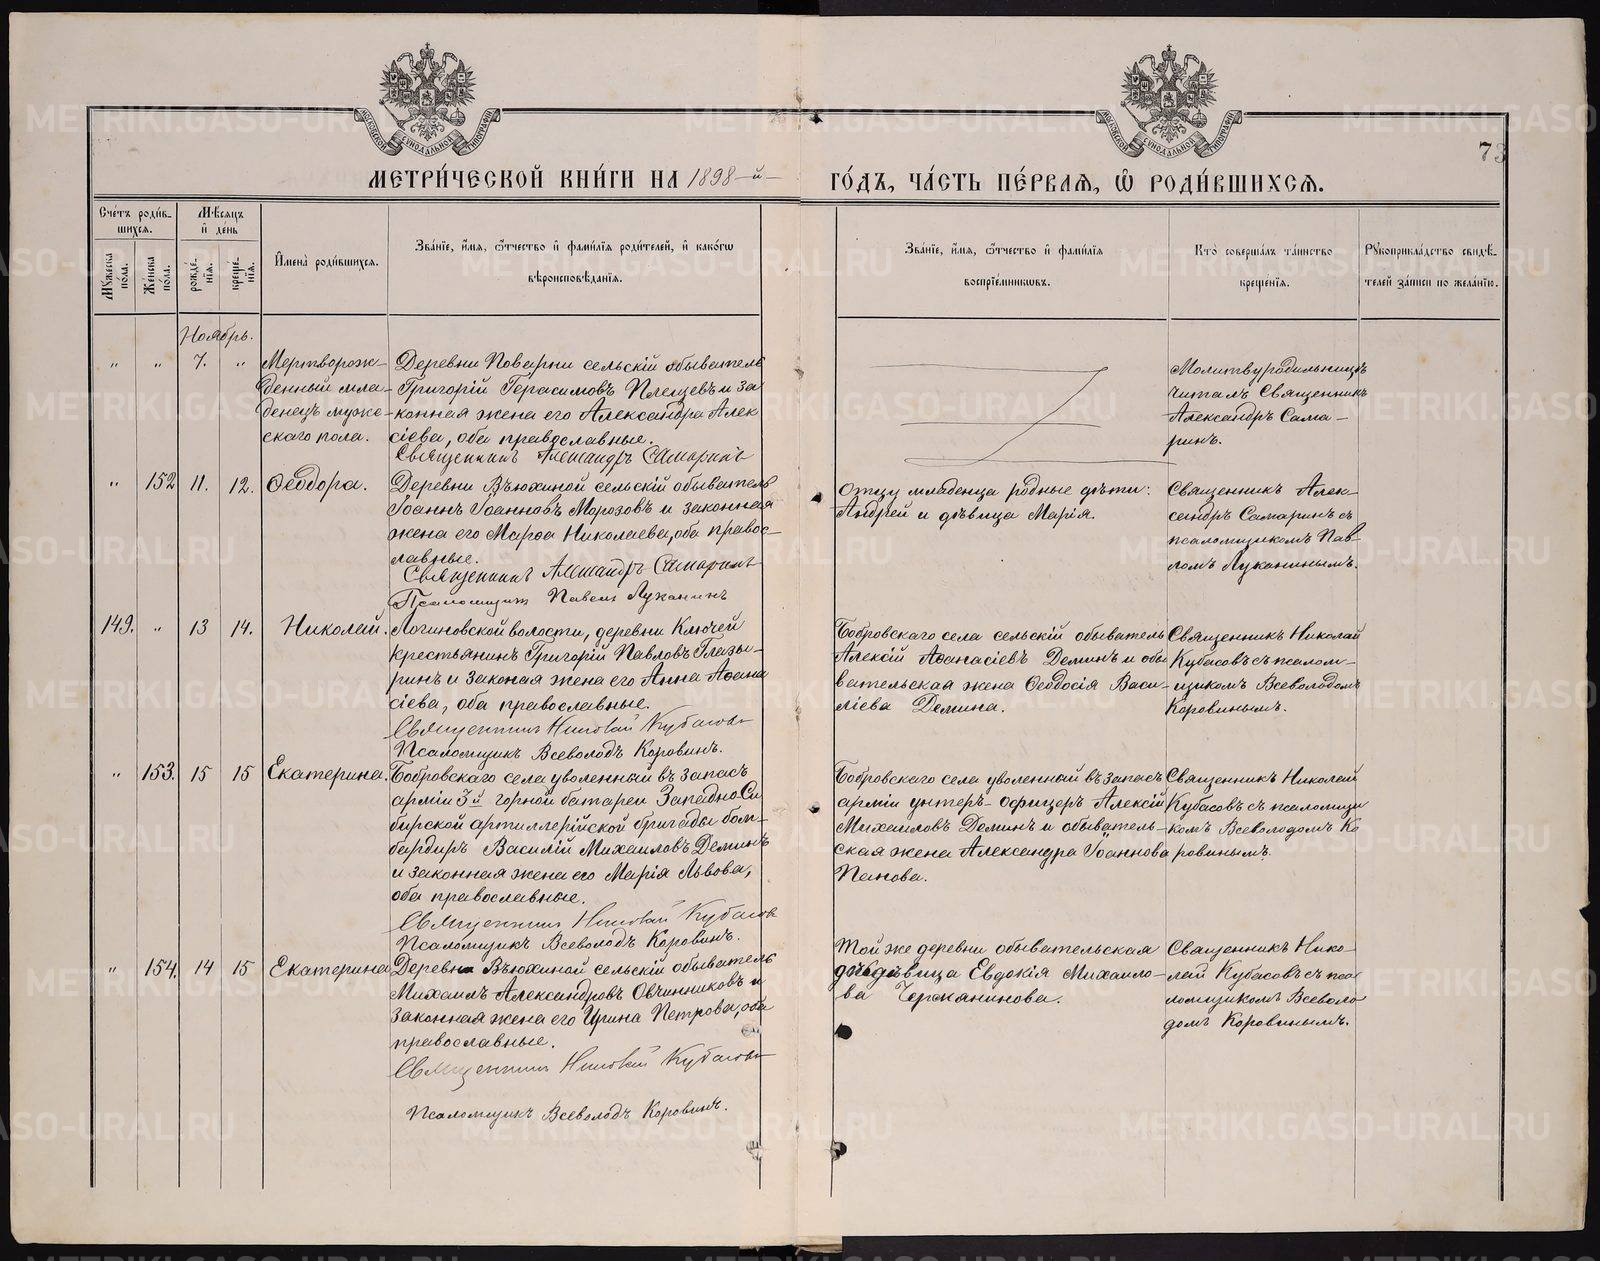 73
МЕТРИ́ЧЕСКОЙ КНИ́ГИ НА 1898-й- ГО́ДЪ, ЧА́СТЬ ПЕ́РВАѦ, Ѡ РОДИ́ВШИХСѦ.
Сче́тъ роди́в-
шихся.
Мѣ́сяцъ
и̂ де́нь
Мꙋ́жеска по́ла.
Же́нска по́ла.
рожде́-
нїя.
креще́-
нїя.
И̂мена̀ роди́вшихся.
Зва́нїе, и̂́мя, ѻ̂́тчество и̂ фами́лїя роди́телей, и̂ како́гѡ
вѣроисповѣ́данїя.
Зва́нїе, и̂́мя, ѻ̂́тчество и̂ фами́лїя
воспрїе́мниковъ.
Кто̀ соверша́лъ та́инство
креще́нїя.
Рꙋкоприкла́дство свидѣ́-
телей за́писи по жела́нїю.
Ноябрь.
" " 7. "
Мертворож-
денный мла-
денецъ муже-
скаго пола.
Деревни Поварни сельскій обыватель
Григорій Герасимовъ Плещевъ и за
конная жена его Александра Алек
сіева, оба православные.
Священникъ Александръ Самаринъ
Молитву родильницѣ
читалъ Священникъ
Александръ Сама-
ринъ.
" 152 11. 12. Ѳеодора.
Деревни Вьюхиной сельскій обыватель
Іоаннъ Іоанновъ Морозовъ и законная
жена его Марѳа Николаева, оба правос-
лавные.
Священникъ Александръ Самаринъ
Псаломщикъ Павелъ Луканинъ
Отцу младенца родные дѣти:
Андрей и дѣвица Марія.
Священникъ Алек-
сандръ Самаринъ съ
псаломщикомъ Пав-
ломъ Луканинымъ.
149. " 13 14. Николай.
Логиновской волости, деревни Ключей
крестьянинъ Григорій Павловъ Глазы-
ринъ и законая жена его Анна Аѳана
сіева, оба православные.
Священникъ Николай Кубасовъ
Псаломщикъ Всеволодъ Коровинъ.
Бобровскаго села сельскій обыватель
Алексій Аѳанасіевъ Деминъ и обы
вательская жена Ѳеодосія Васи-
ліева Демина.
Священникъ Николай
Кубасовъ съ псалом-
щикомъ Всеволодомъ
Коровинымъ.
" 153. 15 15 Екатерина.
Бобровскаго села уволенный въ запасъ
арміи 3й горной батареи Западно-Си
бирской артиллерійской бригады бом-
бардиръ Василій Михаиловъ Деминъ
и законная жена его Марія Львова,
оба православные.
Священникъ Николай Кубасовъ
Псаломщикъ Всеволодъ Коровинъ.
Бобровскаго села уволенный въ запасъ
арміи унтеръ-офицеръ Алексій
Михаиловъ Деминъ и обыватель-
ская жена Александра Іоаннова
Панова.
Священникъ Николай
Кубасовъ съ псаломщи
комъ Всеволодомъ Ко
ровинымъ.
" 154. 14 15 Екатерина
Деревни Вьюхиной сельскій обыватель
Михаилъ Александровъ Овчинниковъ и
законная жена его Ирина Петрова, оба
православные.
Священникъ Николай Кубасовъ
Псаломщикъ Всеволодъ Коровинъ.
Той же деревни обывательская
дѣвица Евдокія Михаило-
ва Чермянинова.
Священникъ Нико-
лай Кубасовъ съ пса
ломщикомъ Всеволо
домъ Коровинымъ.
METRIKI.GASO-URAL.RU